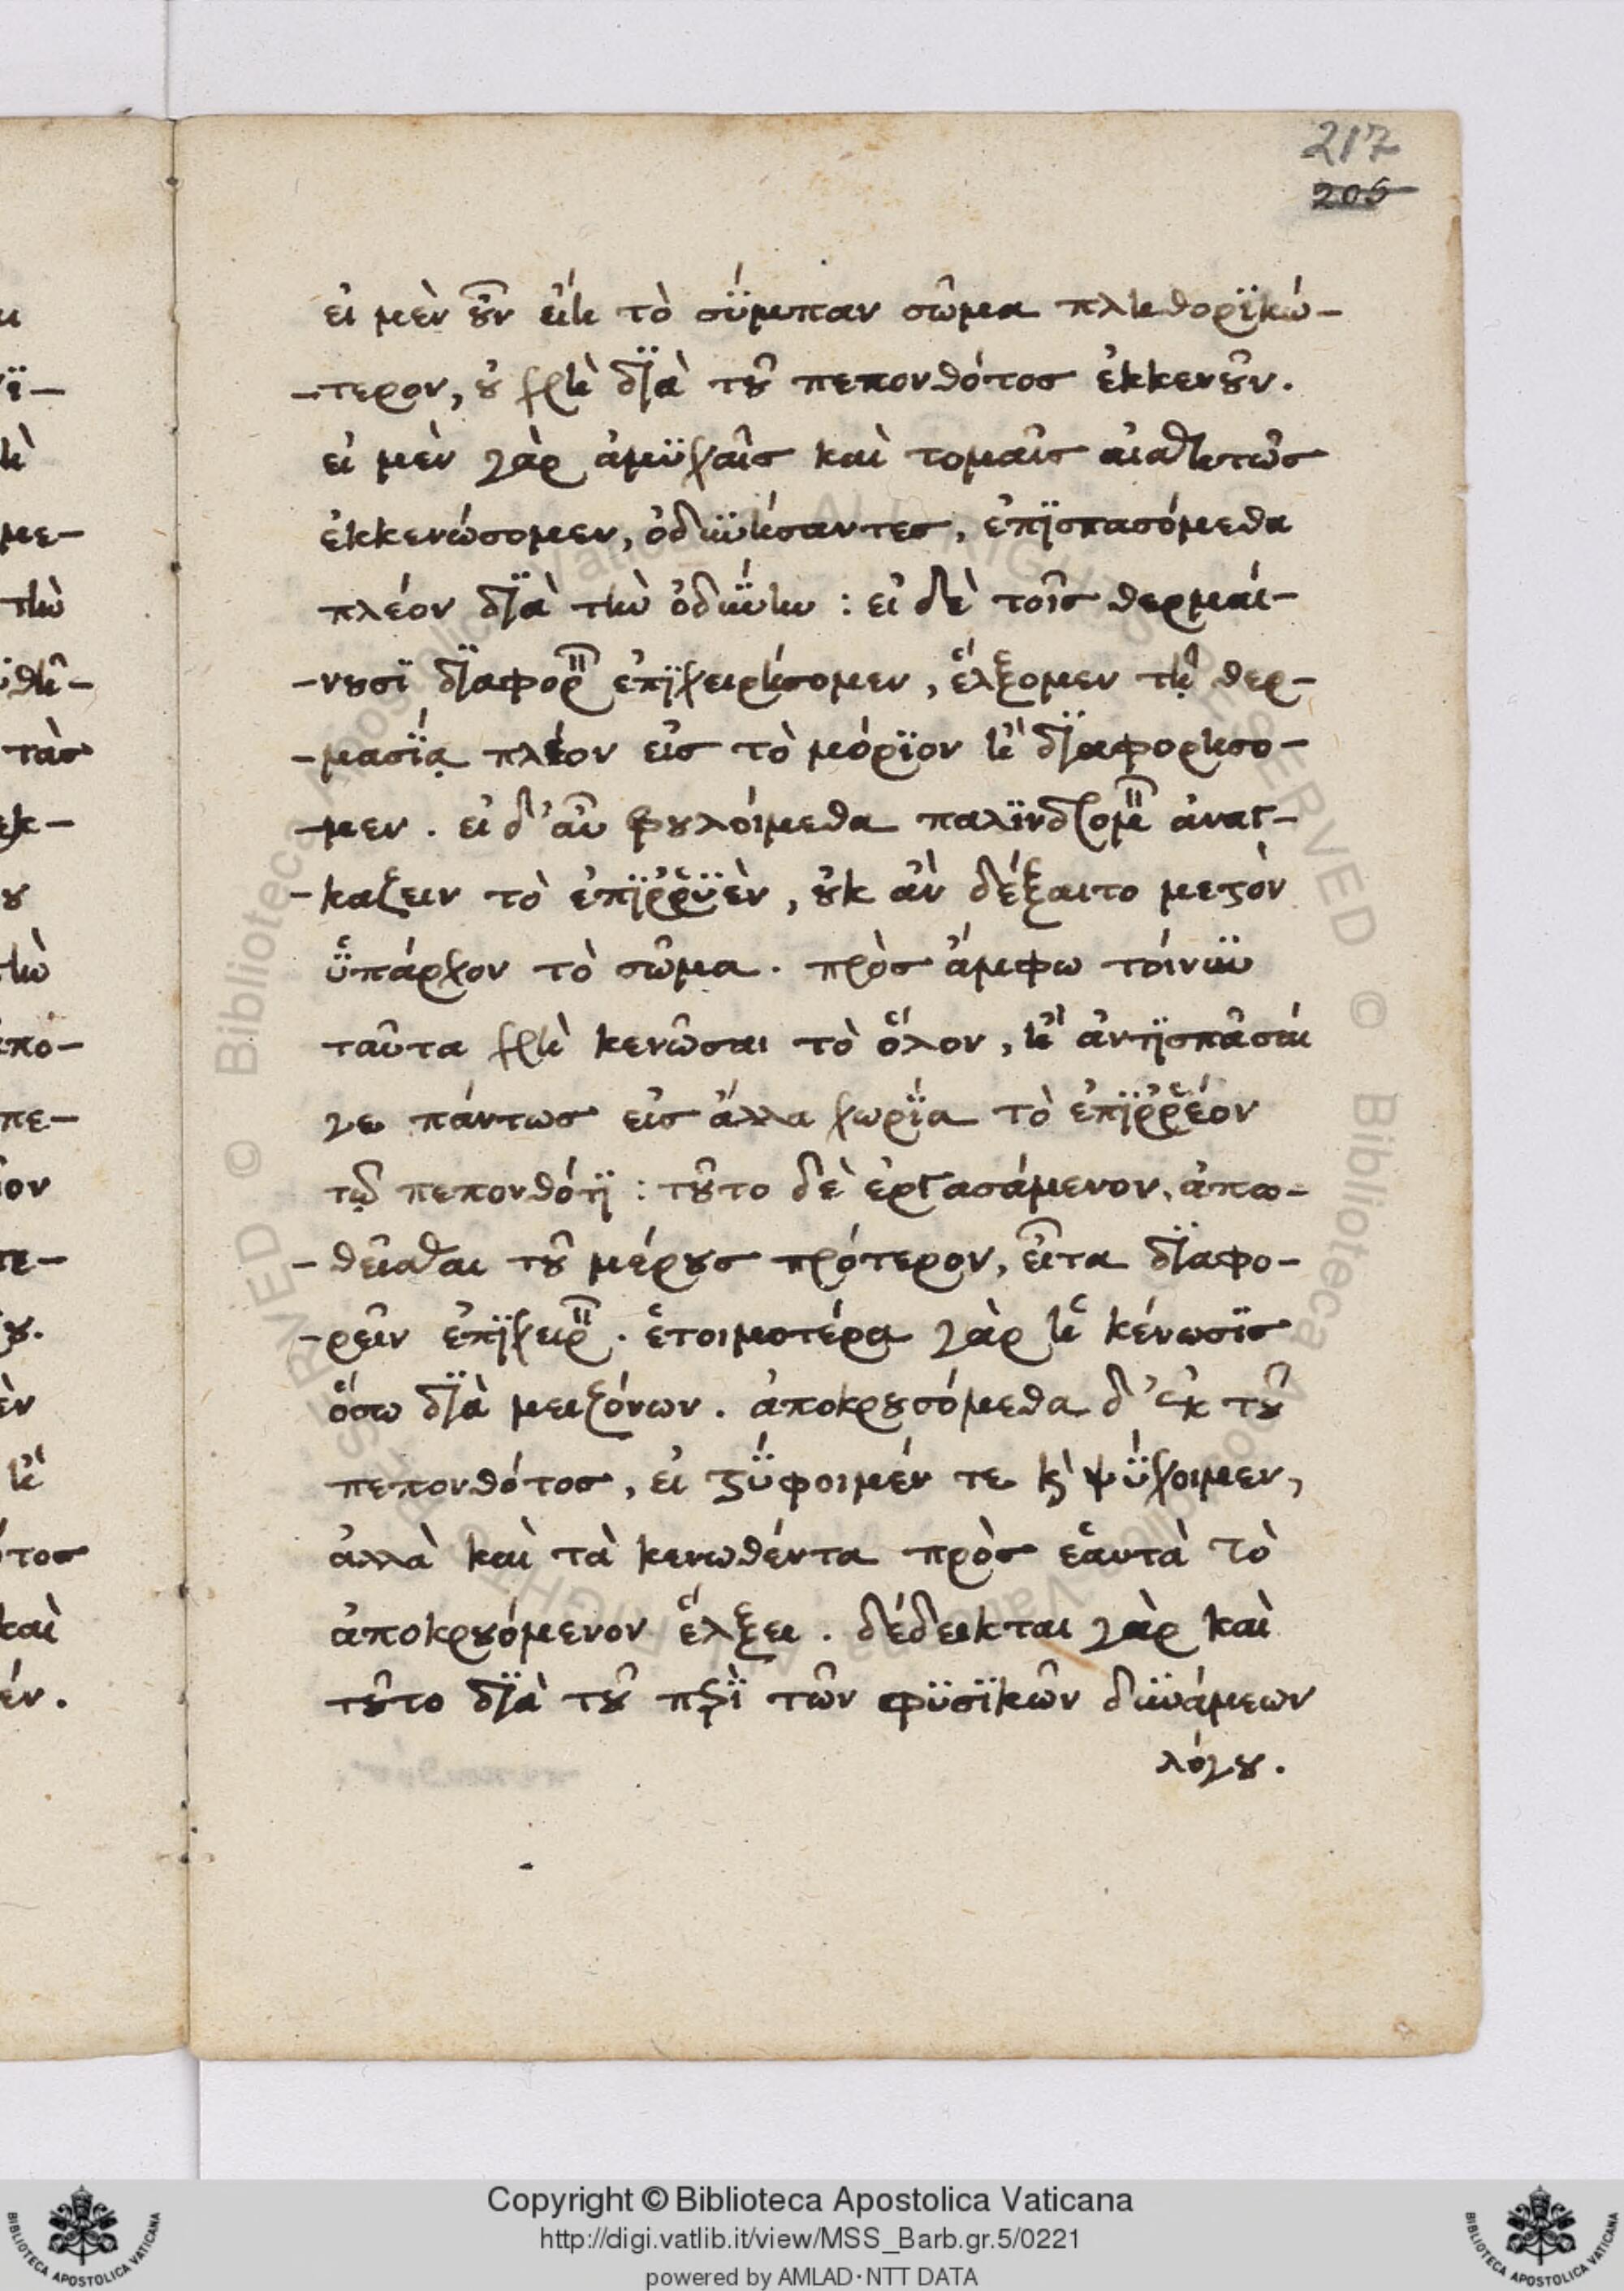 217
206
εἰ μὲν οὖν εἴη τὸ σύμπαν σῶμα πληθορϊκώ-
-τερον, οὐ χρὴ δϊὰ τοῦ πεπονθότος ἐκκενοῦν.
εἰ μὲν γὰρ ἀμϋχαῖς καὶ τομαῖς αἰσθητῶς
ἐκκενώσομεν, ὀδϋνήσαντες, ἐπϊσπασόμεθα
πλέον δϊὰ τὴν ὀδύνην : εἰ δὲ τοῖς θερμαί-
-νουσϊ δϊαφορεῖν ἐπϊχειρήσομεν, ἕλξομεν τῇ θερ-
-μασΐᾳ πλέον εἰς τὸ μόρϊον ἢ δϊαφορήσο-
-μεν. εἰ δ' αὖ βουλοίμεθα παλϊνδρομεῖν ἀναγ-
-καζειν τὸ ἐπϊῤῥϋὲν, οὐκ ἂν δέξαιτο μεστὸν
ὕπάρχον τὸ σῶμα. πρὸς ἄμφω τοίνϋν
ταῦτα χρὴ κενῶσαι τὸ ὅλον, ἢ ἀντϊσπᾶσαί
γε πάντως εἰς ἄλλα χωρΐα τὸ ἐπϊῤῥέον
τῷ πεπονθότϊ : τοῦτο δὲ ἐργασάμενον, ἀπω-
-θεῖσθαι τοῦ μέρους πρότερον, εἶτα δϊαφο-
-ρεῖν ἐπϊχειρεῖν. ἑτοιμοτέρα γὰρ ἡ κένωσϊς
ὅσω δϊὰ μειζόνων. ἀποκρουσόμεθα δ' ἐκ τοῦ
πεπονθότος, εἰ στΰφοιμέν τε κ̀ ψΰχοιμεν,
ἀλλὰ καὶ τὰ κενωθέντα πρὸς ἑαυτὰ τὸ
ἀποκρουόμενον ἕλξει. δέδεικται γὰρ καὶ
τοῦτο δϊὰ τοῦ περῒ τῶν φϋσϊκῶν δϋνάμεων
λόγου.
Copyright © Biblioteca Apostolica Vaticana
http://digi.vatlib.it/view/MSS_Barb.gr.5/0221
powered by AMLAD·NTT DATA
BIBLIOTECA APOSTOLICA VATICANA
BIBLIOTECA APOSTOLICA VATICANA